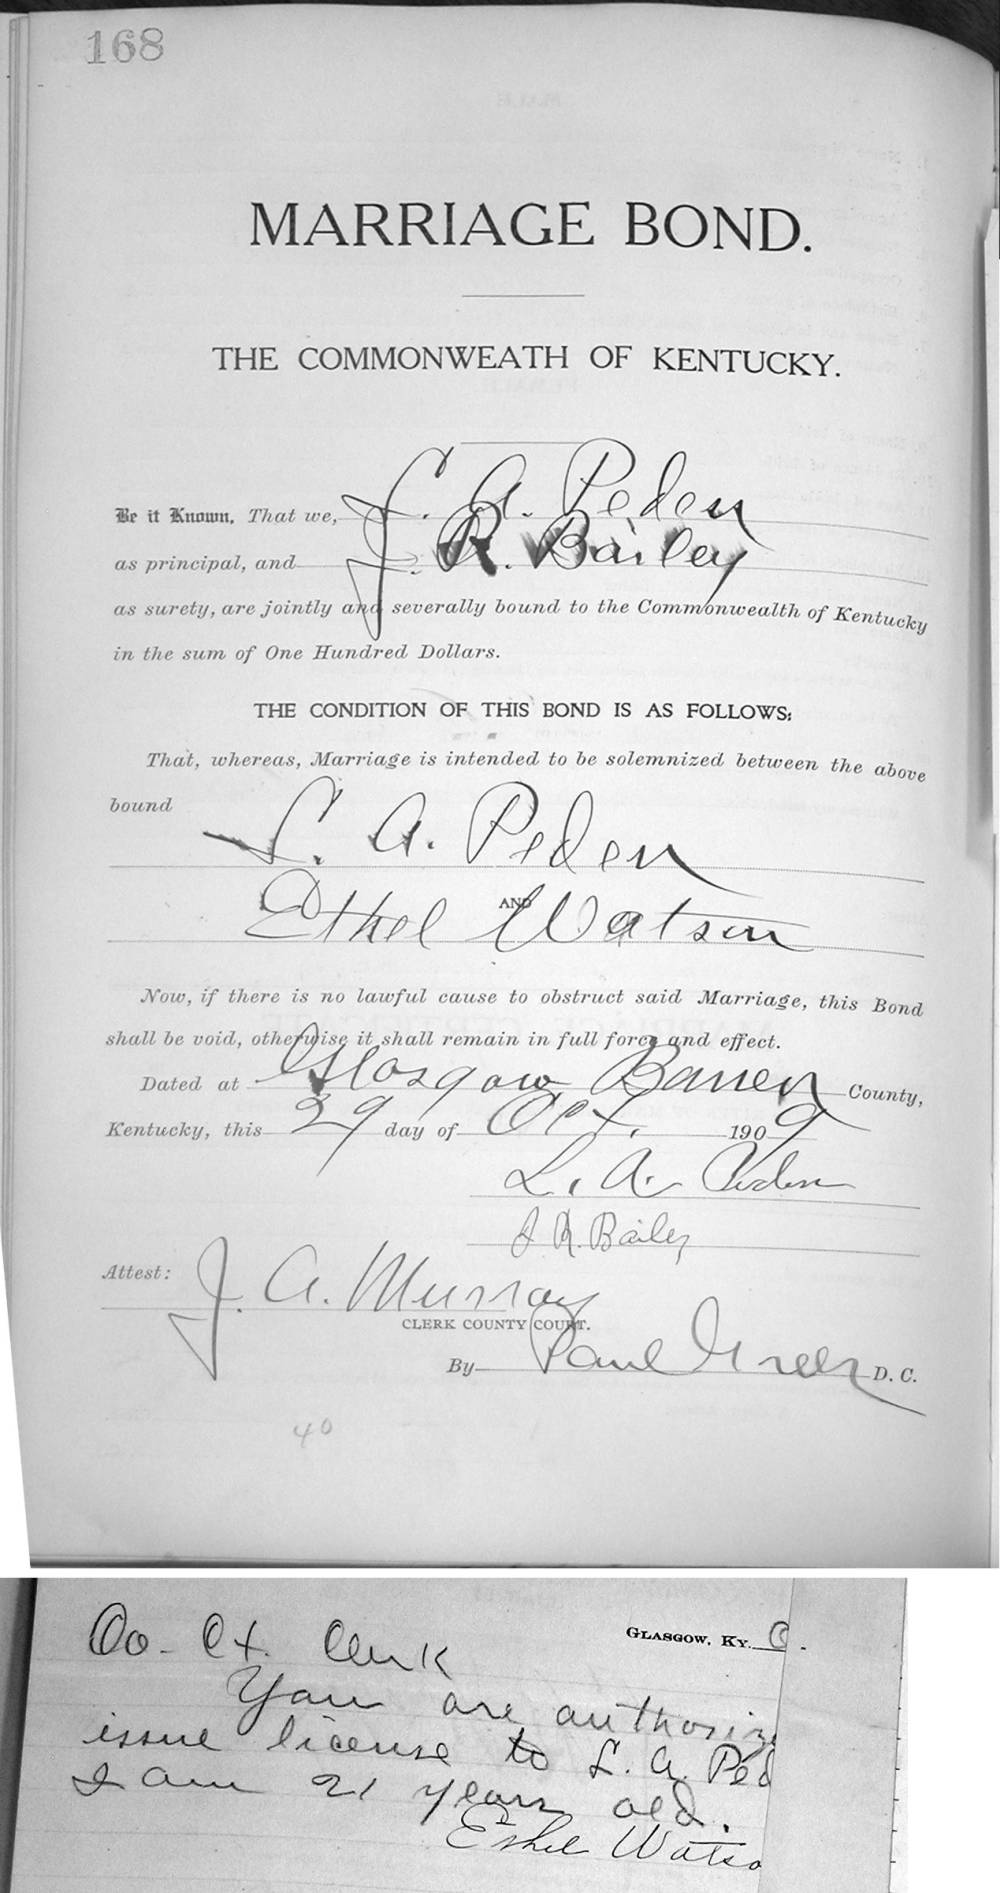 168
MARRIAGE BOND.
THE COMMONWEATH OF KENTUCKY.
Be it Known, That we, L. A. Peden
as principal, and J. R. Bailey
as surety, are jointly and severally bound to the Commonwealth of Kentucky
in the sum of One Hundred Dollars.
THE CONDITION OF THIS BOND IS AS FOLLOWS:
That, whereas, Marriage is intended to be solemnized between the above
bound
L. A. Peden
AND
Ethel Watson
Now, if there is no lawful cause to obstruct said Marriage, this Bond
shall be void, otherwise it shall remain in full force and effect.
Dated at Glasgow Barren County,
Kentucky, this 29 day of Oct. 1909
L. A. Peden
J R. Bailey
Attest:
J. A. Murray
CLERK COUNTY COURT.
By Paul Greer D. C.
40
GLASGOW, KY. O
Co- Ct. Clerk
You are authoriz
issue license to L. A. Ped
I am 21 years old.
Ethel Watso